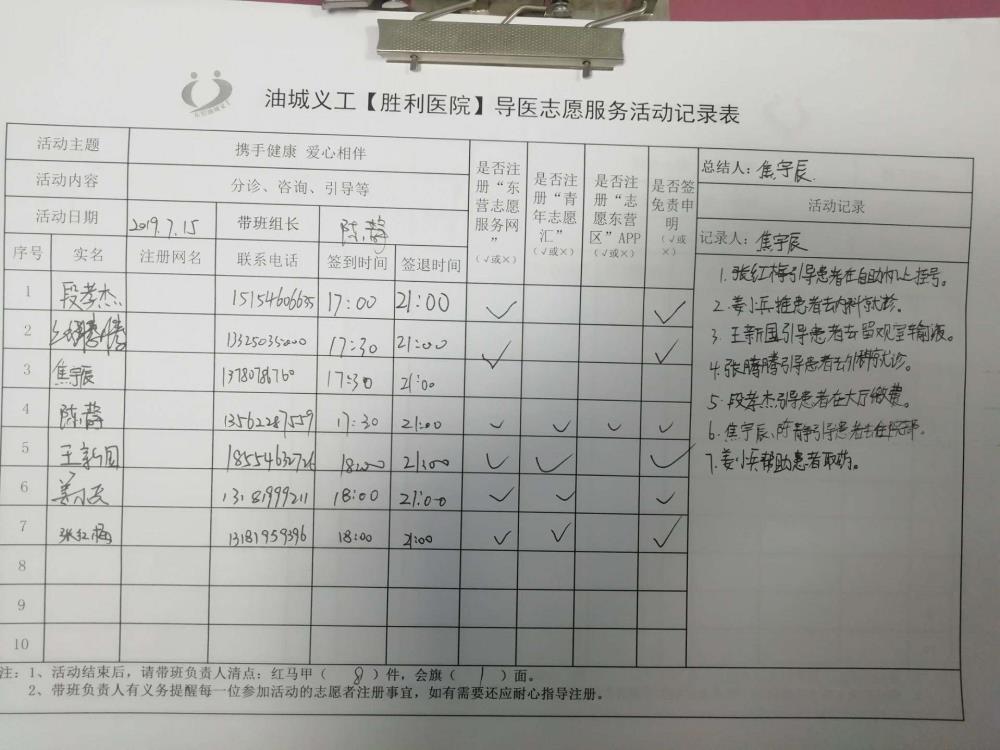 油城义工【胜利医院】导医志愿服务活动记录表
活动主题 携手健康 爱心相伴
活动内容 分诊、咨询、引导等
活动日期 2019.7.15 带班组长 陈静
是否注册“东营志愿服务网” (√或×)
是否注册“青年志愿汇” (√或×)
是否注册“志愿东营区”APP (√或×)
是否签免责申明 (√或×)
总结人：焦宇辰.
活动记录
记录人：焦宇辰
序号 实名 注册网名 联系电话 签到时间 签退时间
1 段孝杰 15154606635 17:00 21:00 √ √
2 13325035000 17:30 21:00 √ √
3 焦宇辰 13780788760 17:30 21:00
4 陈静 13562287559 17:30 21:00 √ √ √ √
5 王新国 18554632726 18:00 21:00 √ √ √
6 姜小兵 13181999211 18:00 21:00 √ √ √
7 张红梅 13181959396 18:00 21:00 √ √ √
8
9
10
1.张红梅引导患者在自助机上挂号。
2.姜小兵推患者去内科就诊。
3.王新国引导患者去留观室输液。
4.张腾腾引导患者去外科就诊。
5.段孝杰引导患者在大厅缴费。
6.焦宇辰、陈静引导患者去住院部。
7.姜小兵帮助患者取药。
注：1、活动结束后，请带班负责人清点：红马甲（8）件，会旗（1）面。
2、带班负责人有义务提醒每一位参加活动的志愿者注册事宜，如有需要还应耐心指导注册。